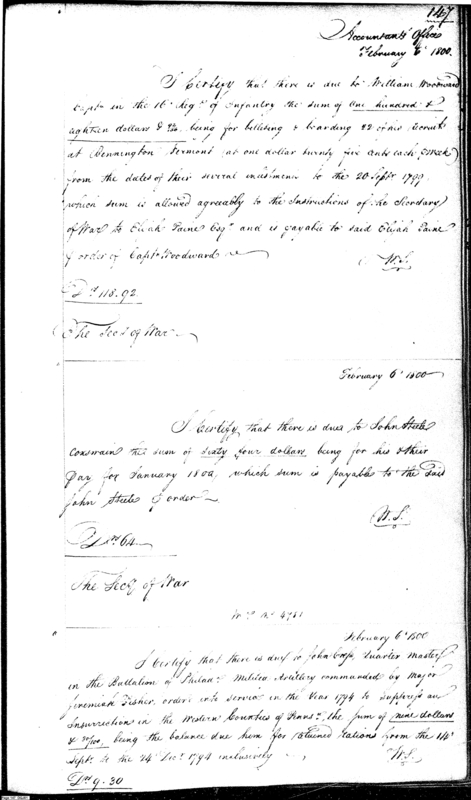 147
Accountants Office
February 6th 1800.
I Certify that there is due to William Woodward
Capt. in the 16th Regt. of Infantry the sum of one hundred &
eighteen dollars & 92/100 being for billeting & boarding 22 of his recruits
at Bennington Vermont (at one dollar twenty five cents each week)
from the dates of their several enlistments to the 20 Septr. 1799
which sum is allowed agreeably to the Instructions of the Secretary
of War to Elijah Paine Esqr. and is payable to said Elijah Paine
order of Captn. Woodward
W.S.
Drs. 118.92
The Secy of War
February 6th 1800
I Certify that there is due to John Steele
the sum of sixty four dollars being for his & their
Pay for January 1800, which sum is payable to the said
John Steele or order
W.S.
Drs. 64.
The Secy of War
February 6th 1800
I Certify that there is due to John Quarter master
in the Battalion of Philada. Militia Artillery commanded by Major
Jeremiah Fisher, order'd into service in the Year 1794 to suppress an
Insurrection in the Western Counties of Pennsa. the sum of nine dollars
& 30/100, being the balance due him for retained rations from the 14th
Septr. to the 24th Decr. 1794 inclusively
W.S.
Drs. 9.30